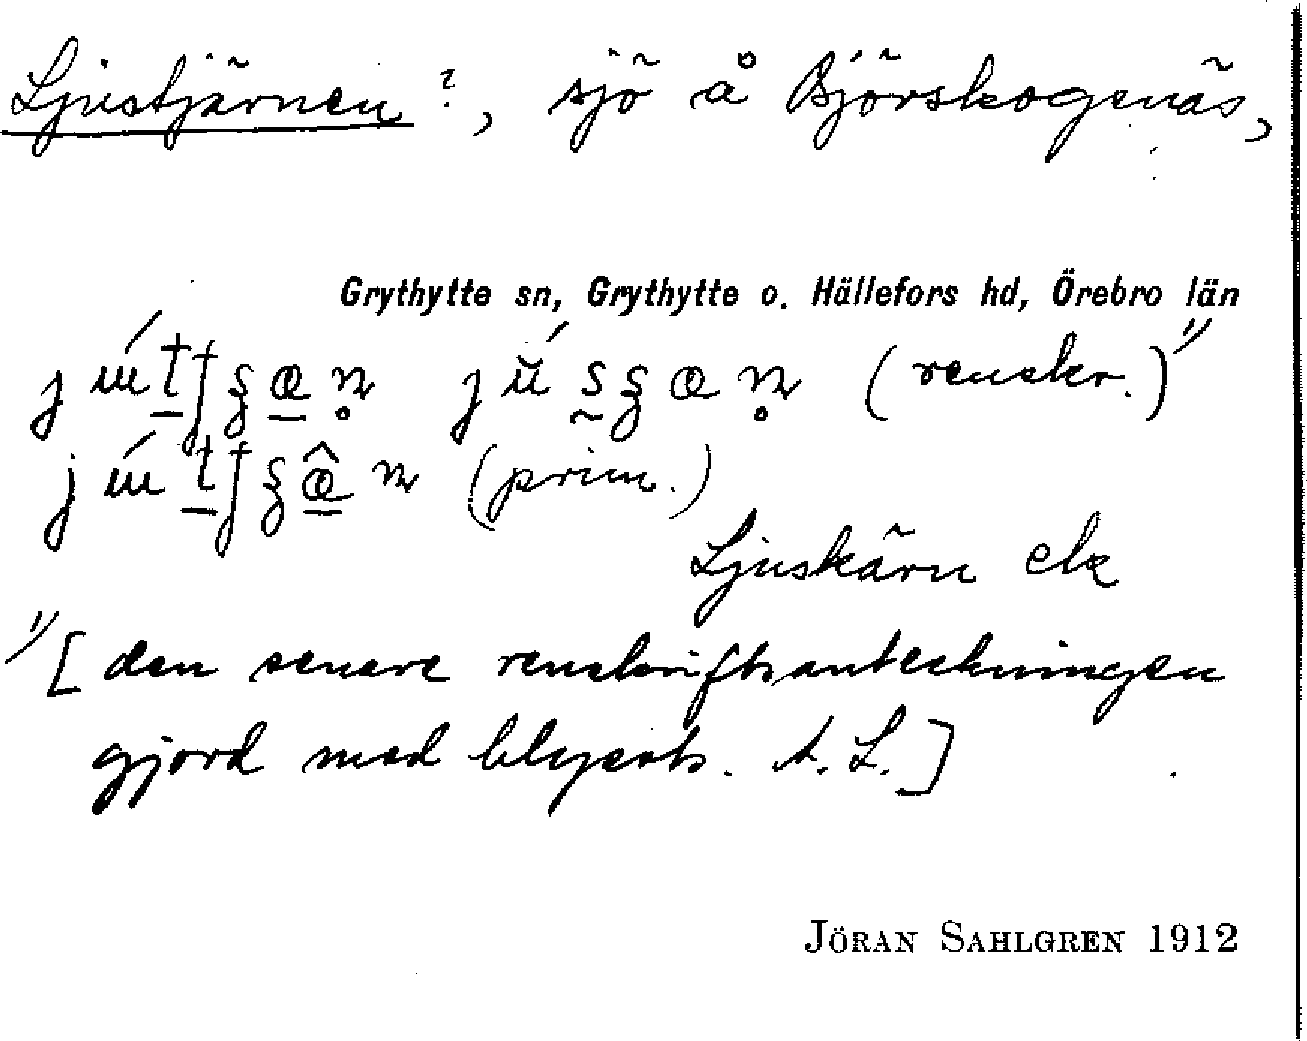 Ljustjärnen?, sjö å Björskogsnäs,
Grythytte sn, Grythytte o. Hällefors hd, Örebro län
(renskr.)¹⁾
(prim.)
Ljuskärn ek
¹⁾[den senare renskriftsanteckningen
gjord med blyerts. A. L.]
JÖRAN SAHLGREN 1912